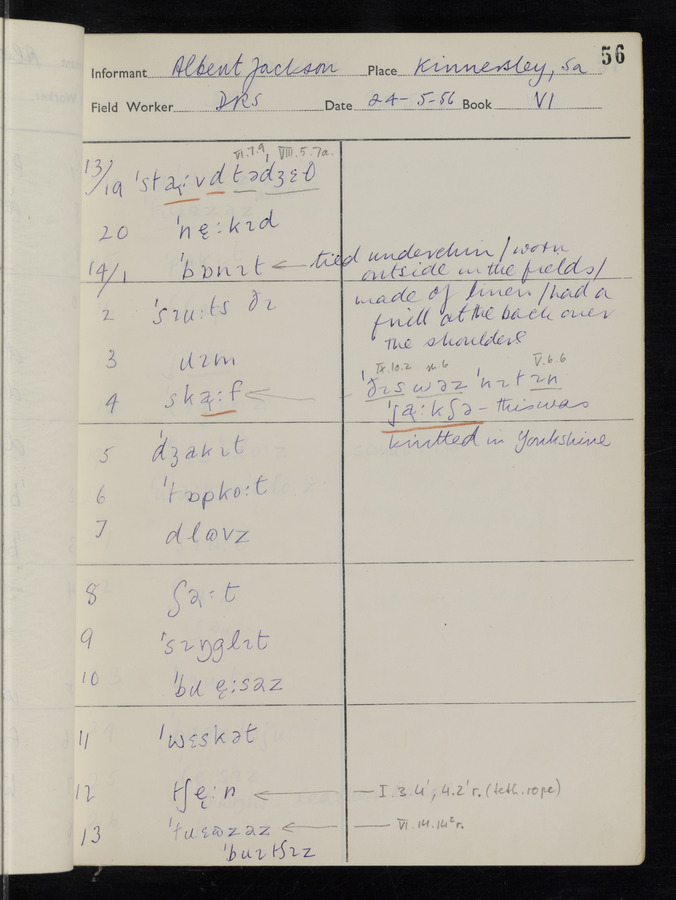 56
Informant Albert Jackson Place Kinnersley, Sa
Field Worker DRS Date 24-5-56 Book VI
VI.7.9, VIII.5.7a.
13/19 'sta̜:vd tədʒɛð
20 'nę:kɪd
14/1 'bɒnɪt ← tied under chin / worn
outside in the fields /
made of linen / had a
frill at the back over
the shoulders
2 'sɪu:ts ðɪ
3 ʊɪm
4 ska̜:f ← 'ðɪs wəz 'nɪtɪn
IX.10.2 V.6.6
'ja̜:kʃə - this was
knitted in Yorkshire
5 'dʒakɪt
6 'tɒpko:t
7 dlʊvz
8 ʃə:t
9 'sɪŋglɪt
10 'bɹę:səz
11 'wɛskət
12 tʃę:n ← I.3.4', 4.2'r. (teth. rope)
13 'tɹɛʊzəz ← VI.14.14²r.
'bɹɪtʃɪz